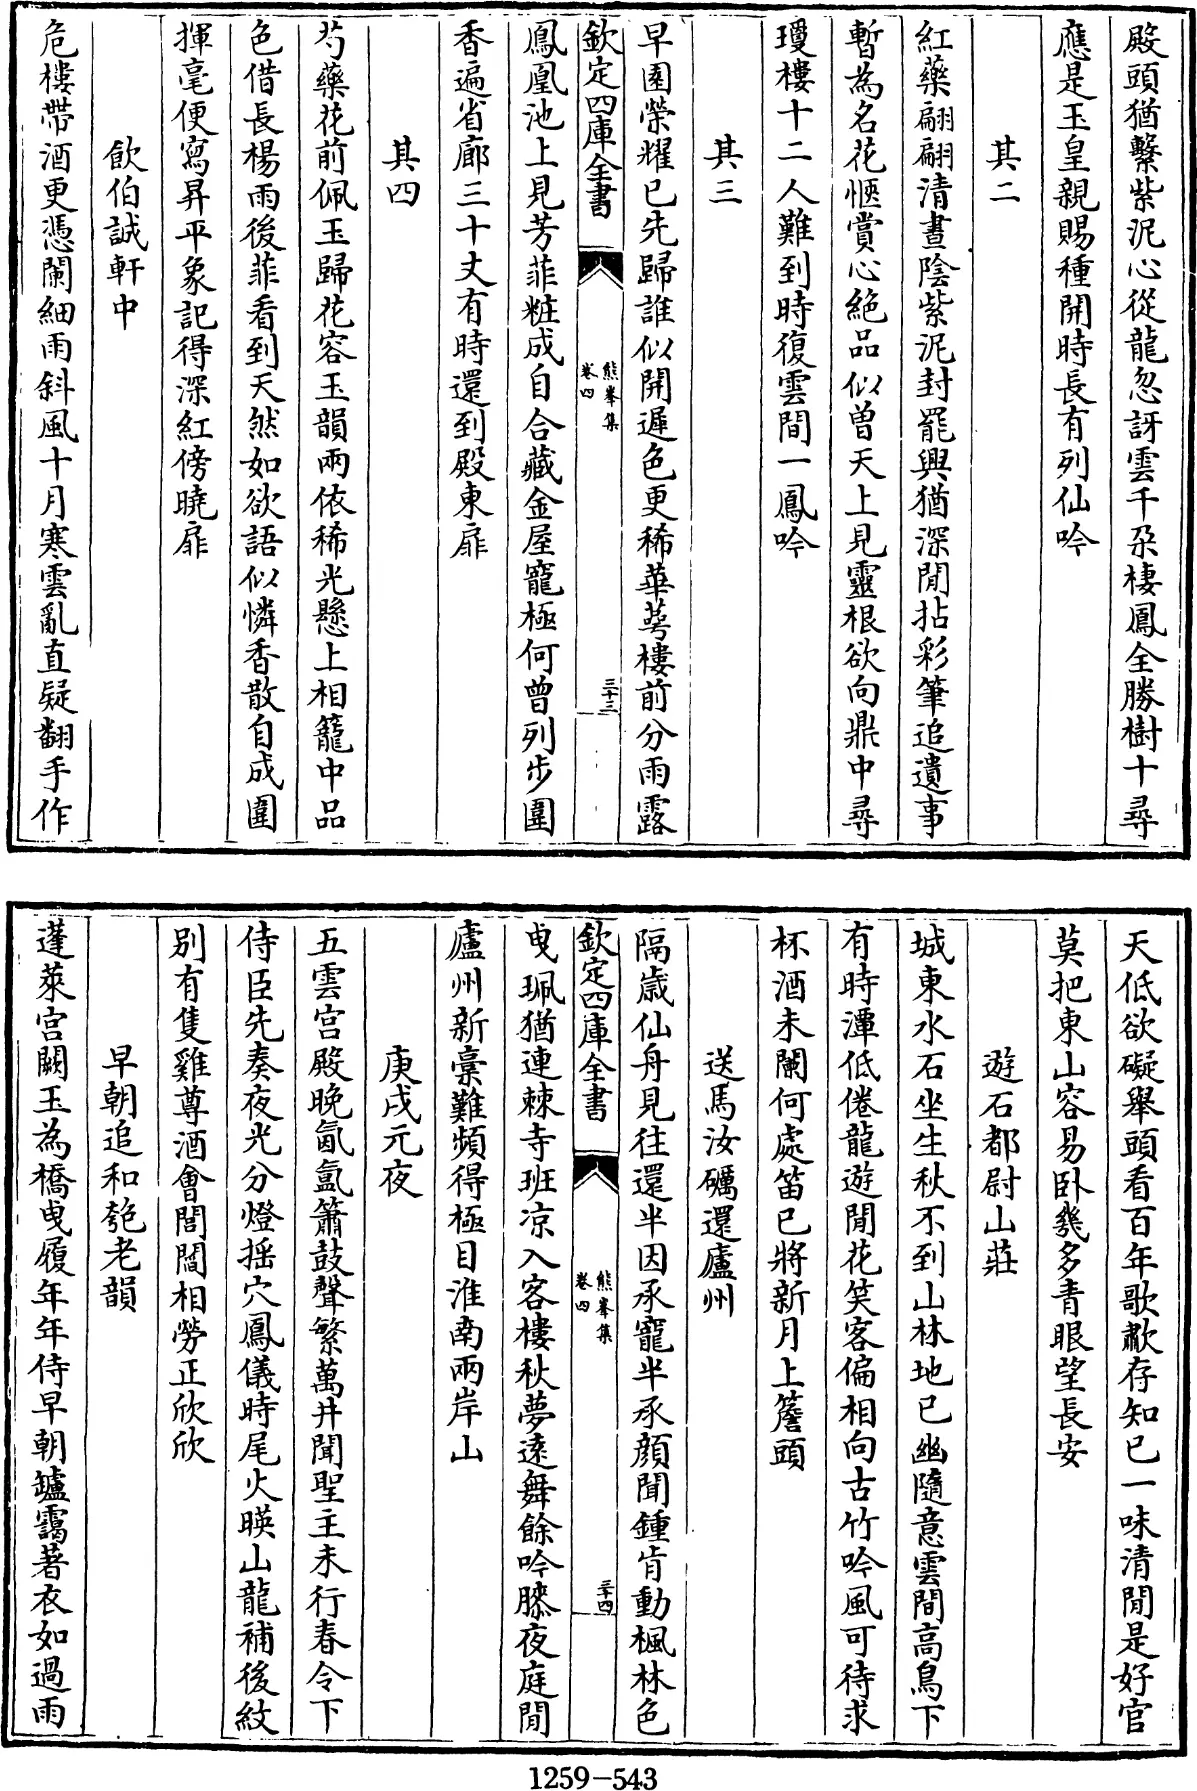 殿頭猶繫紫泥心從龍忽訝雲千朶棲鳳全勝樹十尋
應是玉皇親賜種開時長有列仙吟
其二
紅藥翩翩清晝陰紫泥封罷興猶深閒拈彩筆追遺事
暫為名花愜賞心絶品似曾天上見靈根欲向鼎中尋
瓊樓十二人難到時復雲間一鳳吟
其三
早園榮耀已先歸誰似開遲色更稀華萼樓前分雨露
欽定四庫全書
熊峯集
卷四
三十三
鳳凰池上見芳菲粧成自合藏金屋寵極何曾列步圍
香遍省廊三十丈有時還到殿東扉
其四
芍藥花前佩玉歸花容玉韻兩依稀光懸上相籠中品
色借長楊雨後菲看到天然如欲語似憐香散自成圍
揮毫便寫昇平象記得深紅傍曉扉
飲伯誠軒中
危樓帶酒更憑闌細雨斜風十月寒雲亂直疑翻手作
天低欲礙舉頭看百年歌歗存知已一味清閒是好官
莫把東山容易卧幾多青眼望長安
遊石都尉山莊
城東水石坐生秋不到山林地已幽隨意雲間高鳥下
有時潭低倦龍遊閒花笑客偏相向古竹吟風可待求
杯酒未闌何處笛已將新月上簷頭
送馬汝礪還廬州
隔歳仙舟見往還半因承寵半承顔聞鍾肯動楓林色
欽定四庫全書
熊峯集
卷四
三十四
曵珮猶連棘寺班凉入客樓秋夢遠舞餘吟牋夜庭閒
廬州新稾難頻得極目淮南兩岸山
庚戌元夜
五雲宫殿晚氤氲簫鼓聲繁萬井聞聖主未行春令下
侍臣先奏夜光分燈摇穴鳳儀時尾火暎山龍補後紋
別有隻雞尊酒會誾誾相勞正欣欣
早朝追和匏老韻
蓬萊宫闕玉為橋曵履年年侍早朝鑪靄著衣如過雨
1259-543